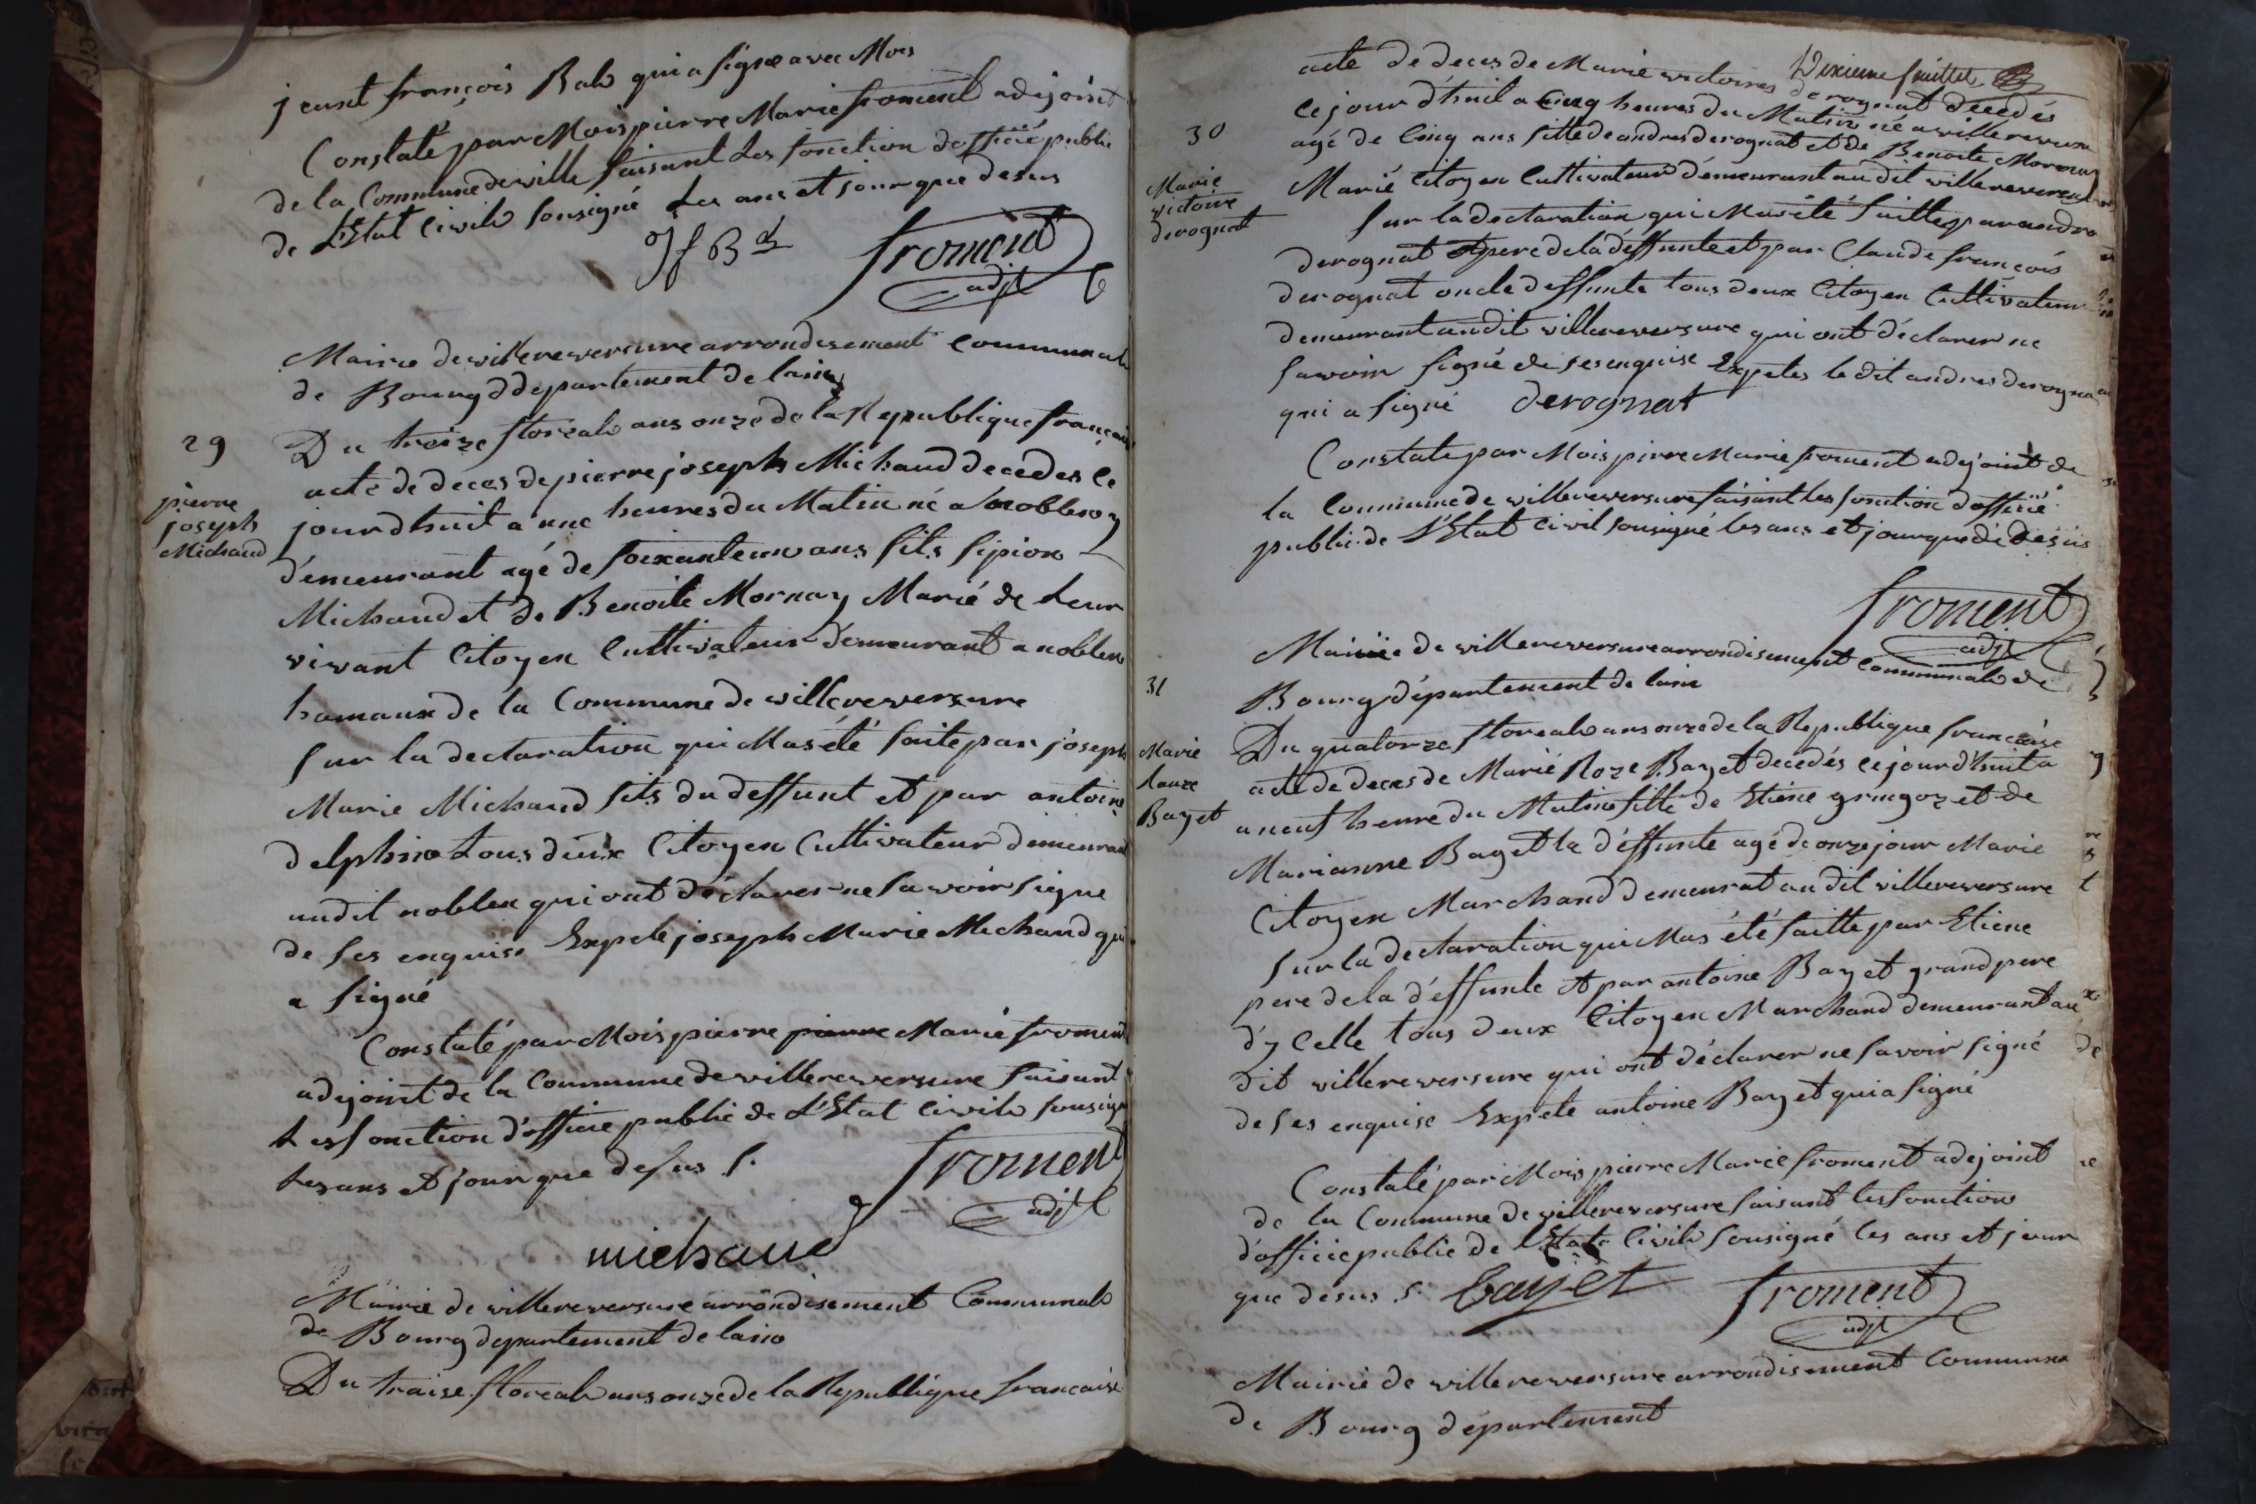 jeant françois Bal qui a signe avec Mois
Constaté par Mois pierre Marie froment adejoint
de la Commune de ville faisant Les fonction d'officié public
de L'Etat Civile sousigné Les ans et jour que desus
J f B d froment
adjt
Mairie de villereversure arrondisement communal
de Bourg d departement de lain
29
Du treize floreal ans onze de la Republique française
pierre
joseph
Michaud
acte de deces de pierre joseph Michaud decedes Ce
jourdhuit a une heures du Matin né a noblens
demeurant agé de soixanteun ans fils sipion
Michaud et de Benoite Mornay Marié de Leur
vivant Citoyen Cultivateur demeurant a noblen
hamaux de la Commune de villereversure
sur la declaration qui Mas été faite par joseph
Marie Michaud fils du deffunt et par antoine
delphin tous deux Citoyen Cultivateur demeurant
audit noblen qui ont déclarer ne savoir signe
de ses enquise Expete joseph Marie Michaud qui
a signé
Constaté par Mois pierre pierre Marie froment
adejoint de la Commune de villereversure faisant
Les fonction d'officie public de L'Etat Civile sousigne
Les ans et jour que desus s.
froment
adjt
michaud
Mairie de villereversure arrondisement Communale
de Bourg departement de lain
Du traise floreal ans onze de la Republique francaise
Dixieme feuillet
acte de deces de Marie victoires derognat décedés
Ce jour d'huil a Cinq heures du Matin né a villereversure
30
agé de Cinq ans fille de andres derognat et de Benoite Morray
Marie
victoire
derognat
Marié Citoyen Cultivateur démeurant au dit villereversure
sur la declaration qui Mas été faitte par andre
derognat pere de la déffunte et par Claude françois
derognat oncle deffunte tous deux Citoyen Cultivateur
demeurant audit villereversure qui ont déclarer ne
savoir signé de ses enquise Expetes ledit andres derognat
qui a signé derognat
Constate par Mois pierre Marie froment adejoint de
la Commune de villereversure faisant les fonction d'officié
public de L'Etat Civil sousigné les ans et jour que de desus
froment
adjt
Mairie de villereversure arrondisement Communale de
31
Bourg département de lain
Du quatorze floreal ans onze de la Republique francaise
Marie
Rauze
Bayet
acte de deces de Marié Roze Bayet decedés ce jour d'huit a
a neuf heure du Matin fille de Etiene gringoz et de
Marianne Bayet la déffunte agé de onze jour Marie
Citoyen Marchand demeurat au dit villereversure
sur la declaration qui Mas été faitte par Etiene
pere de la déffunte et par antoine Bayet grand pere
d'y Celle tous deux Citoyen Marchand demeurant au
dit villereversure qui ont déclarer ne savoir signé
de ses enquise Expete antoine Bayet qui a signé
Constaté par Mois pierre Marie froment adejoint
de la Commune de villereversure faisant les fonction
d'officie public de l'Etate Civile sousigné les ans et jour
que desus s. bayet froment
adjt
Mairie de villereversure arrondisement Communa
de Bourg département